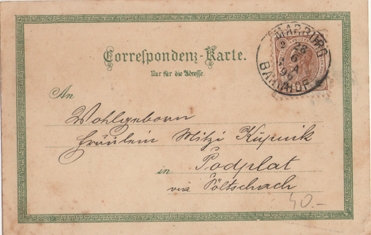 Correspondenz-Karte.
Nur für die Adresse.
An
Wohlgeborn
Fräulein Mitzi Kupnik
in Podplat
via Poltschach
MARBURG
BAHNHOF
40.-